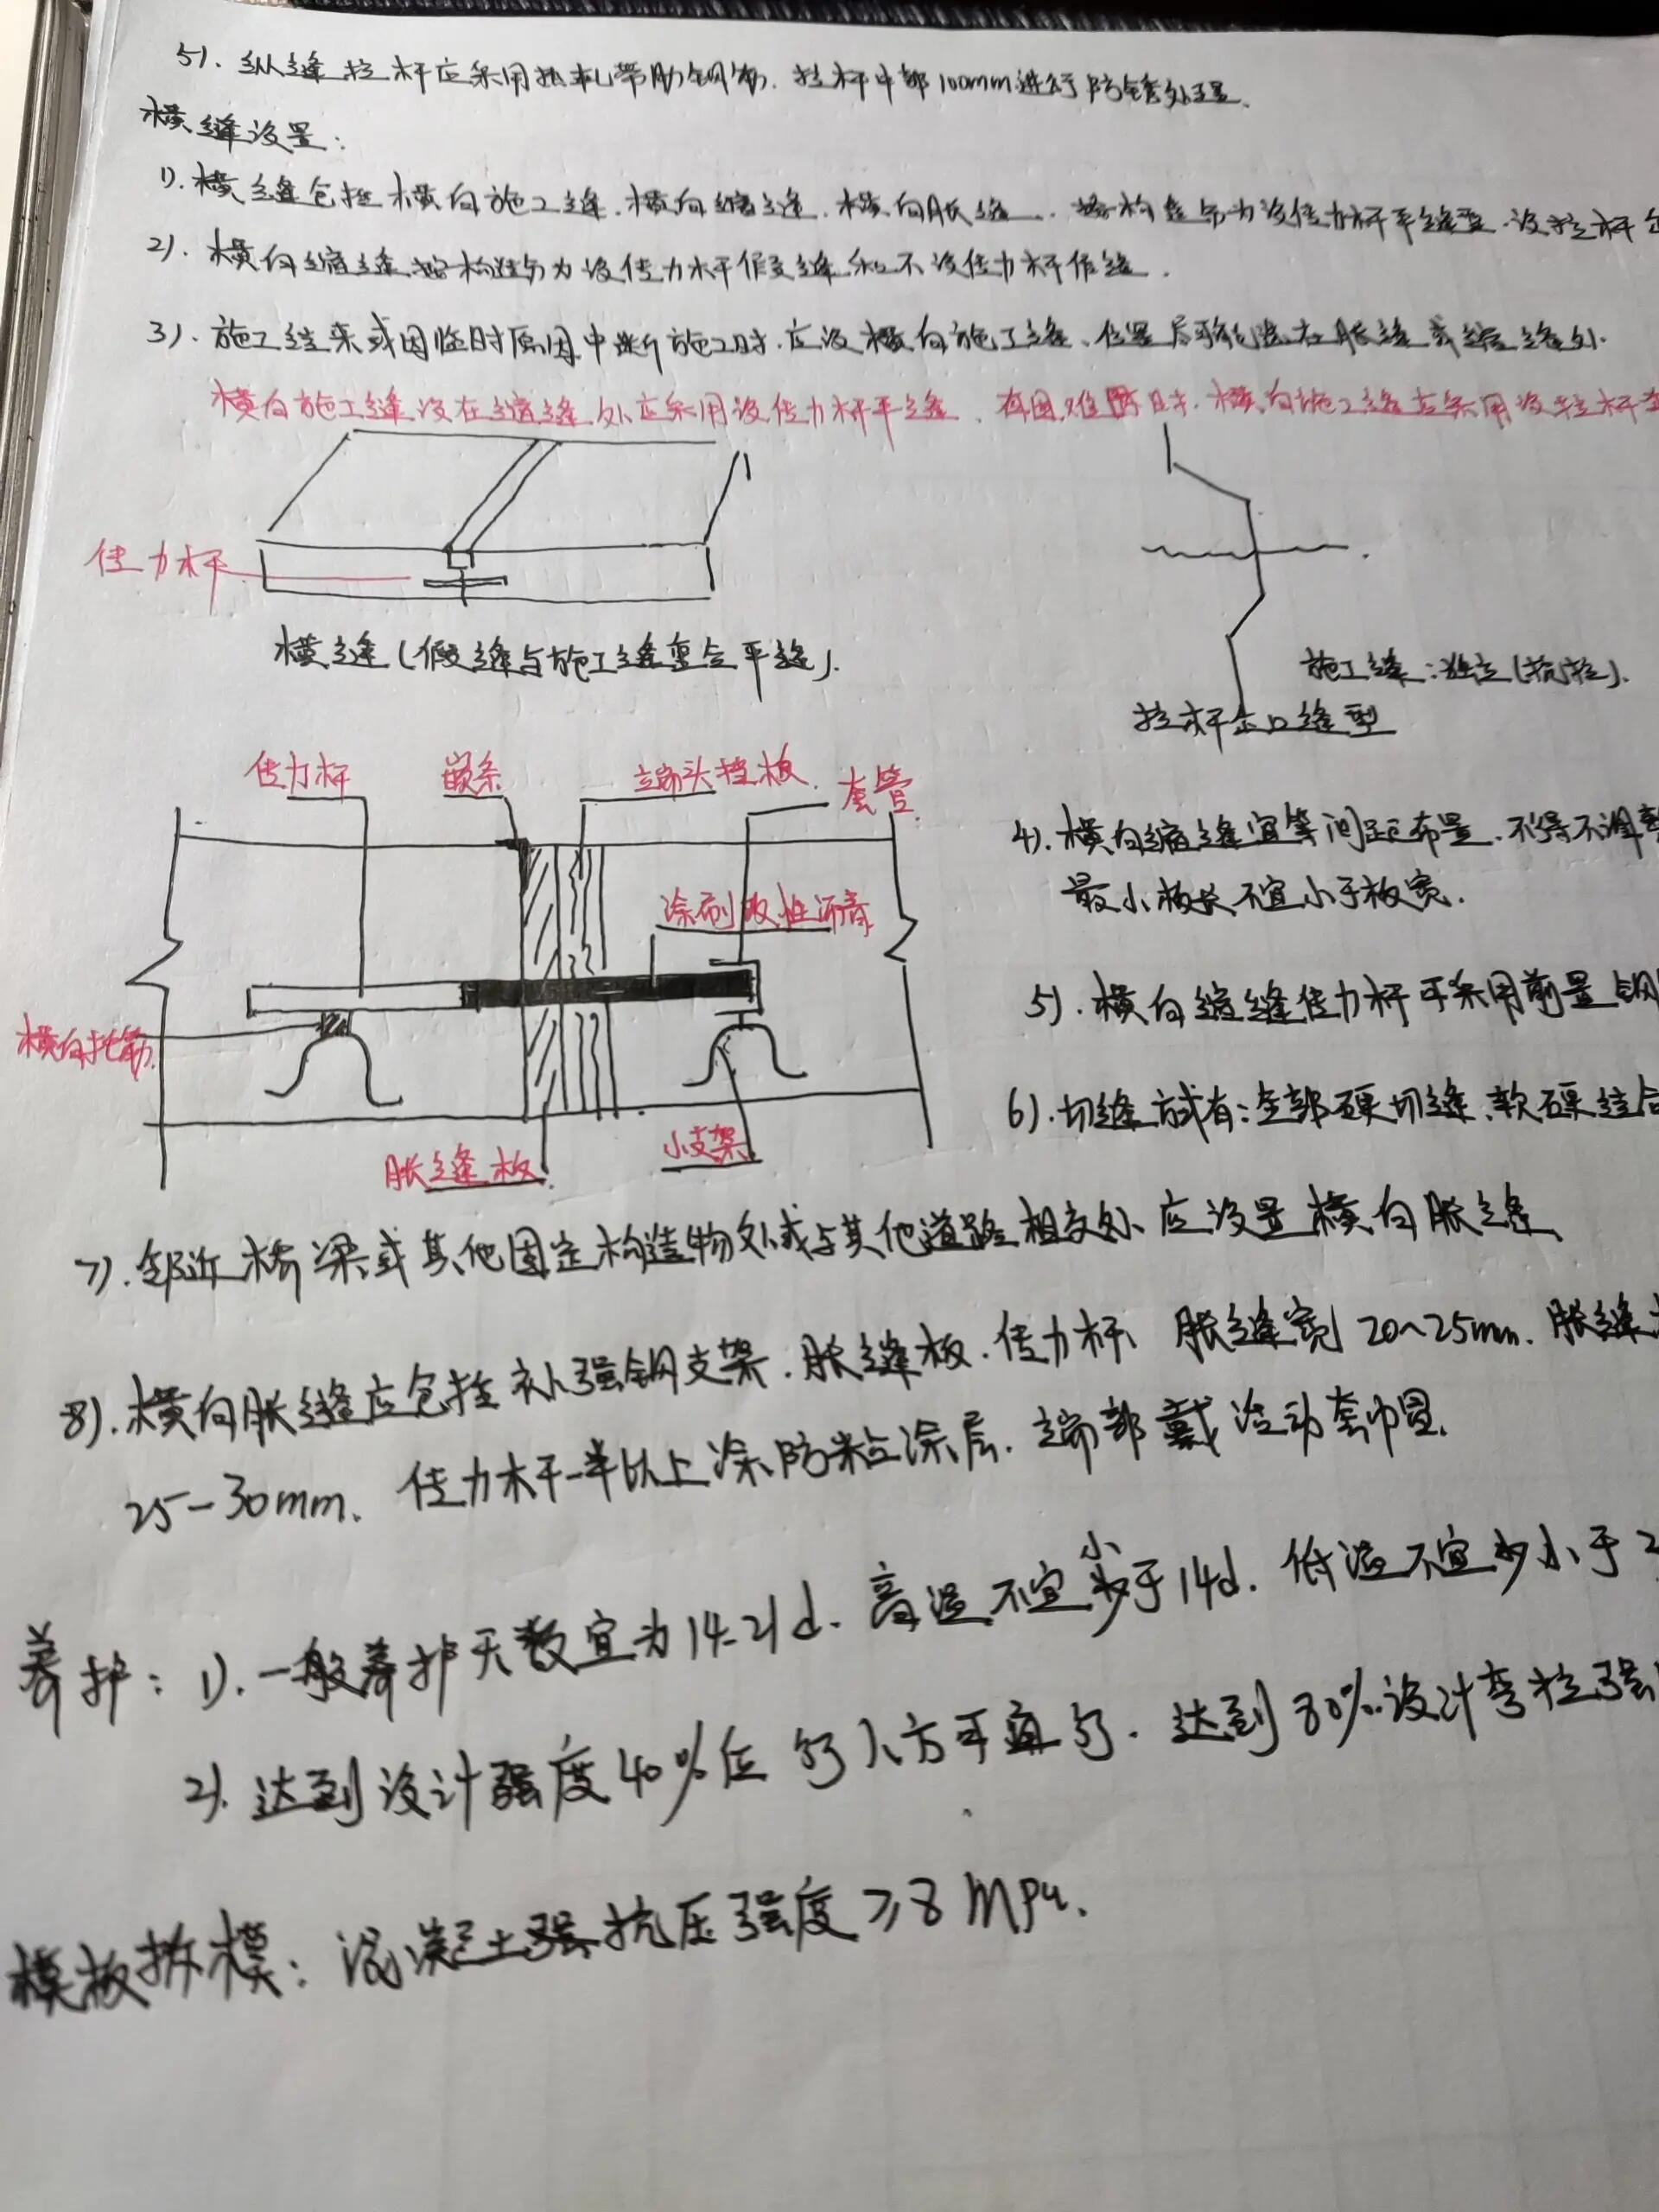 5). 纵缝拉杆应采用热轧带肋钢筋. 拉杆中部100mm进行防锈处理.
横缝设置:
1). 横缝包括横向施工缝. 横向缩缝. 横向胀缝. 按构造分为设传力杆平缝型. 设拉杆企
2). 横向缩缝按构造分为设传力杆假缝和不设传力杆假缝.
3). 施工结束或因临时原因中断施工时. 应设横向施工缝. 位置尽可能选在胀缝或缩缝处.
横向施工缝设在缩缝处应采用设传力杆平缝. 有困难时. 横向施工缝应采用设拉杆企
传力杆
横缝(假缝与施工缝重合平缝).
施工缝:独立(抗拉).
拉杆企口缝型
传力杆 嵌条 端头挡板. 套管
涂刷改性沥青
横向拉筋.
胀缝板. 小支架
4). 横向缩缝宜等间距布置. 不得不调整
最小板长不宜小于板宽.
5). 横向缩缝传力杆可采用前置钢
6). 切缝方式有:全部硬切缝、软硬结合
7). 邻近桥梁或其他固定构造物处或与其他道路相交处、应设置横向胀缝
8). 横向胀缝应包括补强钢支架. 胀缝板. 传力杆、胀缝宽20~25mm. 胀缝
25-30mm. 传力杆一半以上涂防粘涂层. 端部戴活动套帽.
养护: 1). 一般养护天数宜为14-21d. 高温不宜小于14d. 低温不宜小于
2). 达到设计强度40%后 行人方可通行. 达到80%设计弯拉强
模板拆模: 混凝土强抗压强度≥8MPa.